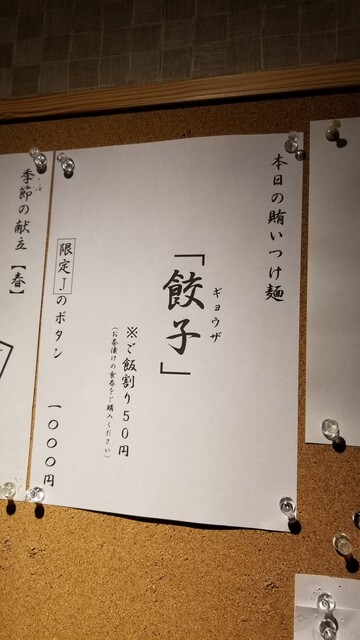 本日の賄いつけ麺
ギョウザ
「餃子」
※ご飯割り50円
(お茶漬けの食券をご購入ください)
限定Jのボタン 一〇〇〇円
季節の献立【春】